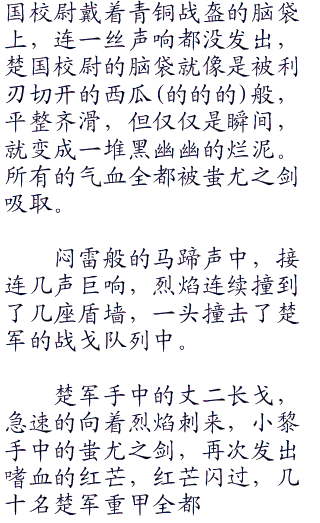 国校尉戴着青铜战盔的脑袋
上，连一丝声响都没发出，
楚国校尉的脑袋就像是被利
刃切开的西瓜(的的的)般，
平整齐滑，但仅仅是瞬间，
就变成一堆黑幽幽的烂泥。
所有的气血全都被蚩尤之剑
吸取。
闷雷般的马蹄声中，接
连几声巨响，烈焰连续撞到
了几座盾墙，一头撞击了楚
军的战戈队列中。
楚军手中的丈二长戈，
急速的向着烈焰刺来，小黎
手中的蚩尤之剑，再次发出
嗜血的红芒，红芒闪过，几
十名楚军重甲全都